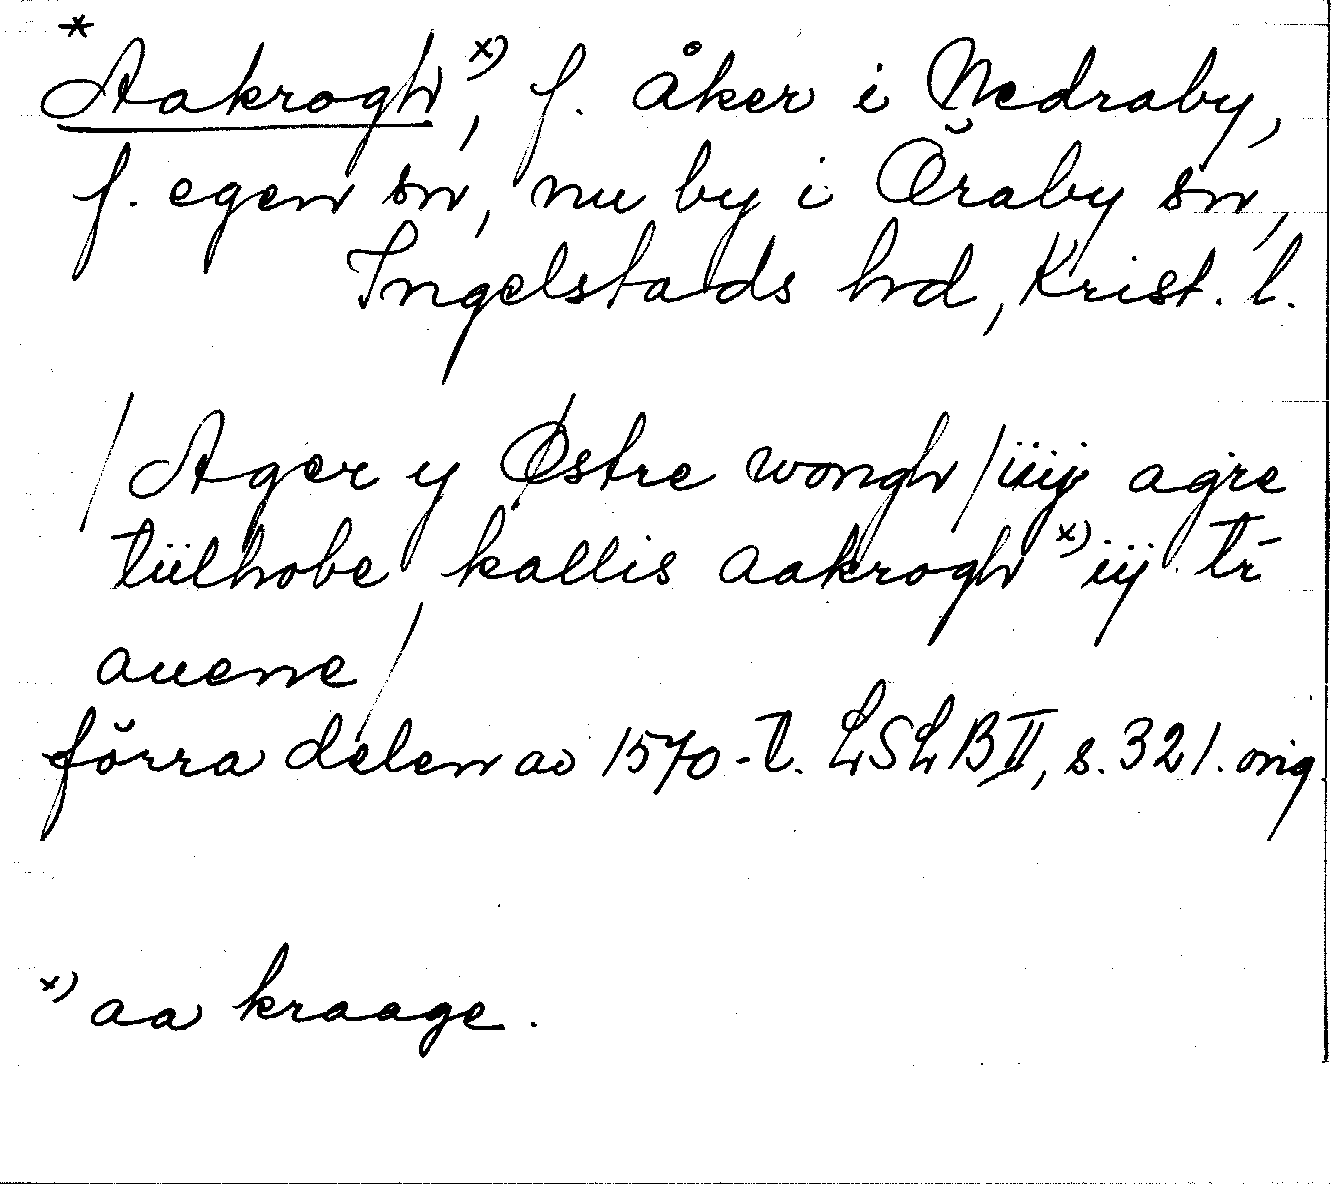 *
Aakrogh x), f. åker i Nedraby,
f. egen sn, nu by i Öraby sn,
Ingelstads hrd, Krist. l.
/Ager y Østre wongh/iiij agre
tiilhobe kallis aakrogh x) iij tr̄
auerne/
förra delen av 1570-t. LSLB II, s. 321. orig
x) aa kraage.